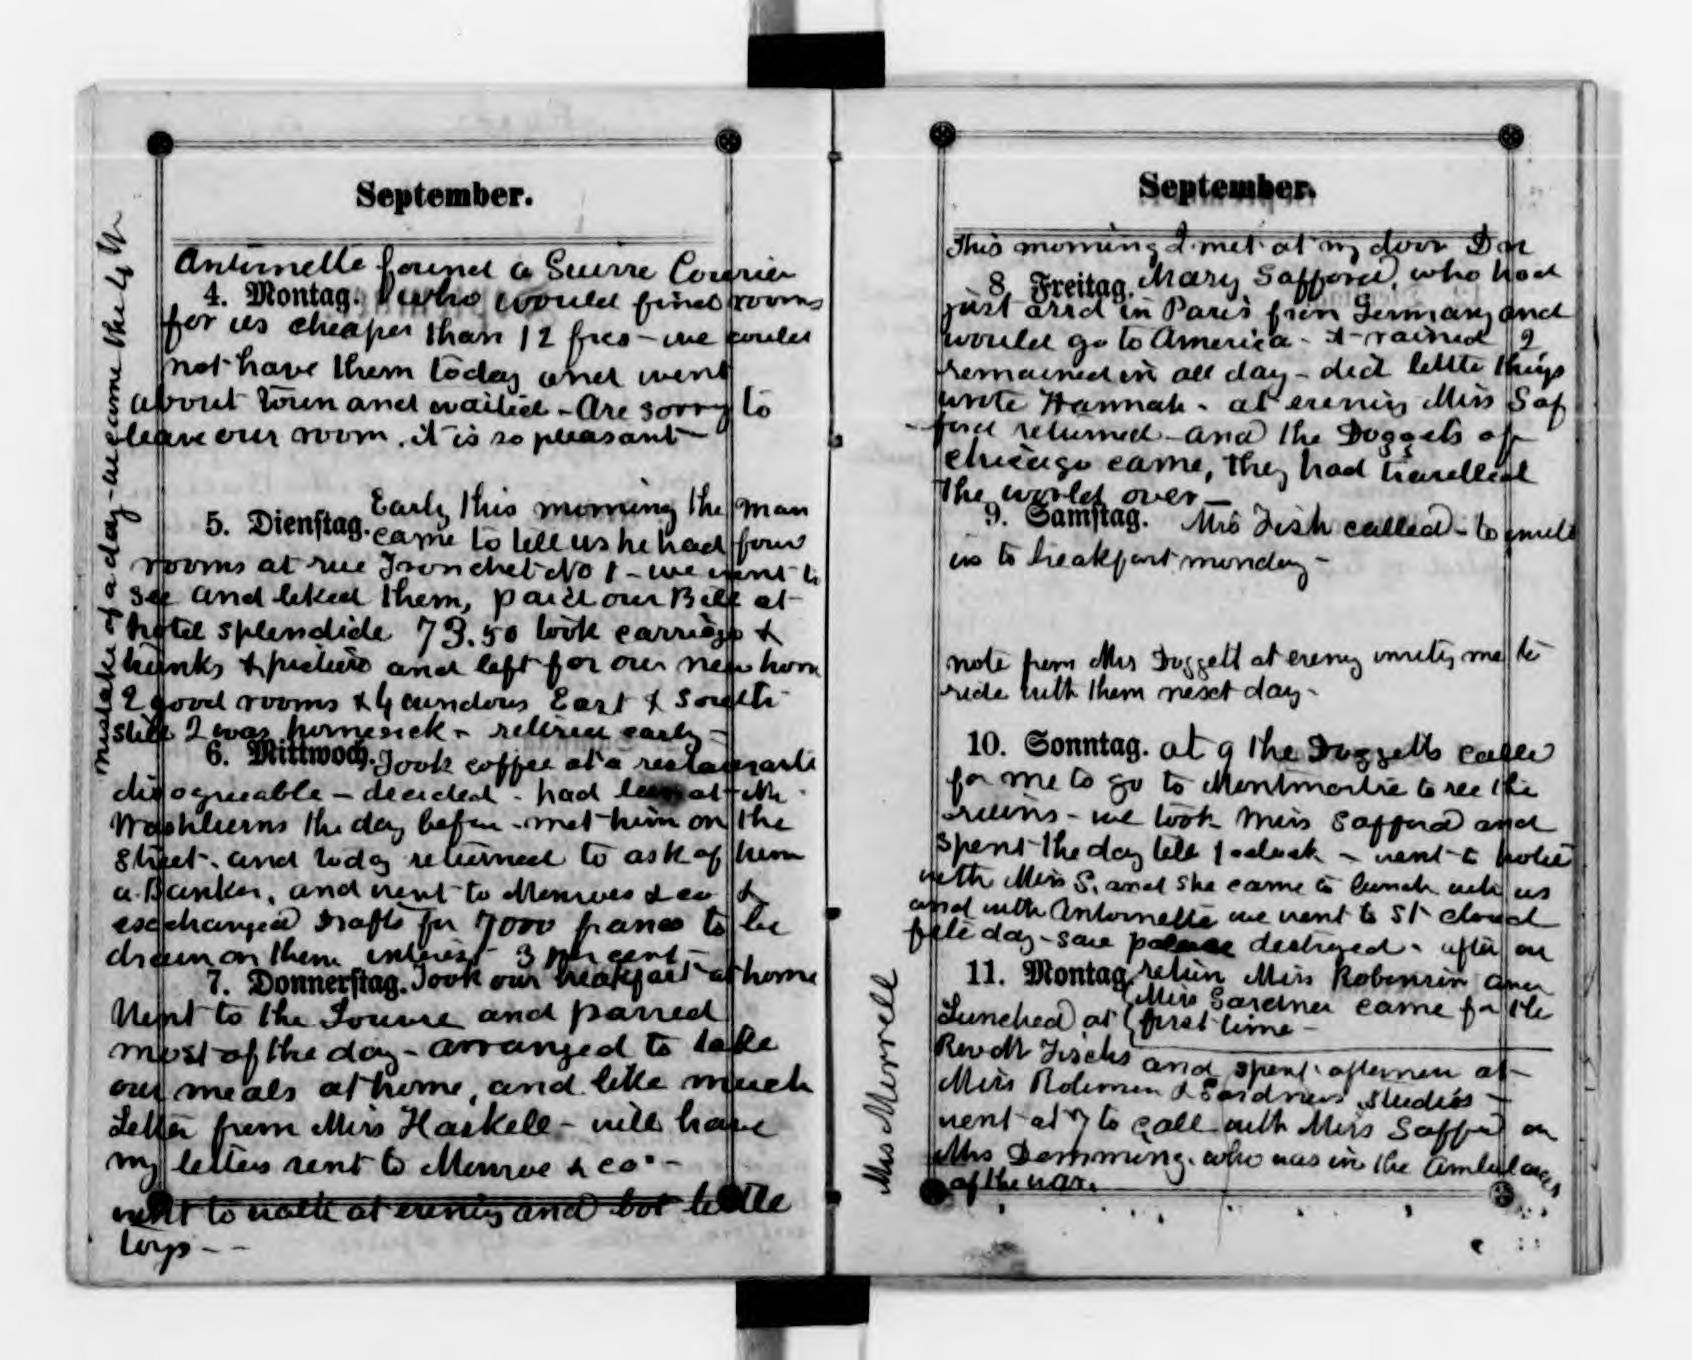 September.
Antoinette found a Suisse Courier
4. Montag. who would find rooms
for us cheaper than 12 frcs - we could
not have them today and went
about town and waited - Are sorry to
leave our room. it is so pleasant -
5. Dienstag. Early this morning the man
came to tell us he had four
rooms at rue Tronchet No 1 - we went to
see and liked them, paid our Bill at
hotel splendide 73.50 took carriage &
trunks & picture and left for our new home
2 good rooms & 4 windows East & South
still I was homesick - retired early -
6. Mittwoch. Took coffee at a restaurante
disagreeable - decided - had been at Mr.
Washburns the day before - met him on the
street. and today returned to ask of him
a Banker, and went to Monroes & co &
exchanged Drafts for 7000 francs to be
drawn on them interest 3 per cent -
7. Donnerstag. Took our breakfast at home
Went to the Louvre and passed
most of the day - arranged to take
our meals at home, and like much
Letter from Miss Haskell - will have
my letters sent to Monroe & co. -
went to walk at evening and bot little
toys - -
mistake of a day - we came the 4th
September.
This morning I met at my door Dr
8. Freitag. Mary Safford, who had
just arrd in Paris from Germany and
would go to America - It rained I
remained in all day - did little things
wrote Hannah - at evening Miss Saf
ford returned - and the Doggets of
Chicago came, they had travelled
the world over -
9. Samstag. Mrs Fish called - to invite
us to breakfast monday -
note from Mrs Doggett at evening inviting me to
ride with them next day -
10. Sonntag. at 9 the Doggetts called
for me to go to Montmartre to see the
ruins - we took Miss Safford and
spent the day till 1 oclock - went to hotel
with Miss S. and she came to lunch with us
and with Antoinette we went to St Cloud
fete day - saw palace destroyed - after our
11. Montag. return Miss Robinson and
Miss Gardner came for the
first time -
Lunched at
Revd Mr Fischs and spent afternoon at
Miss Robinson & Gardners studios -
went at 7 to call with Miss Safford on
Mrs Demming. who was in the Ambulances
of the war.
Mrs Merrell